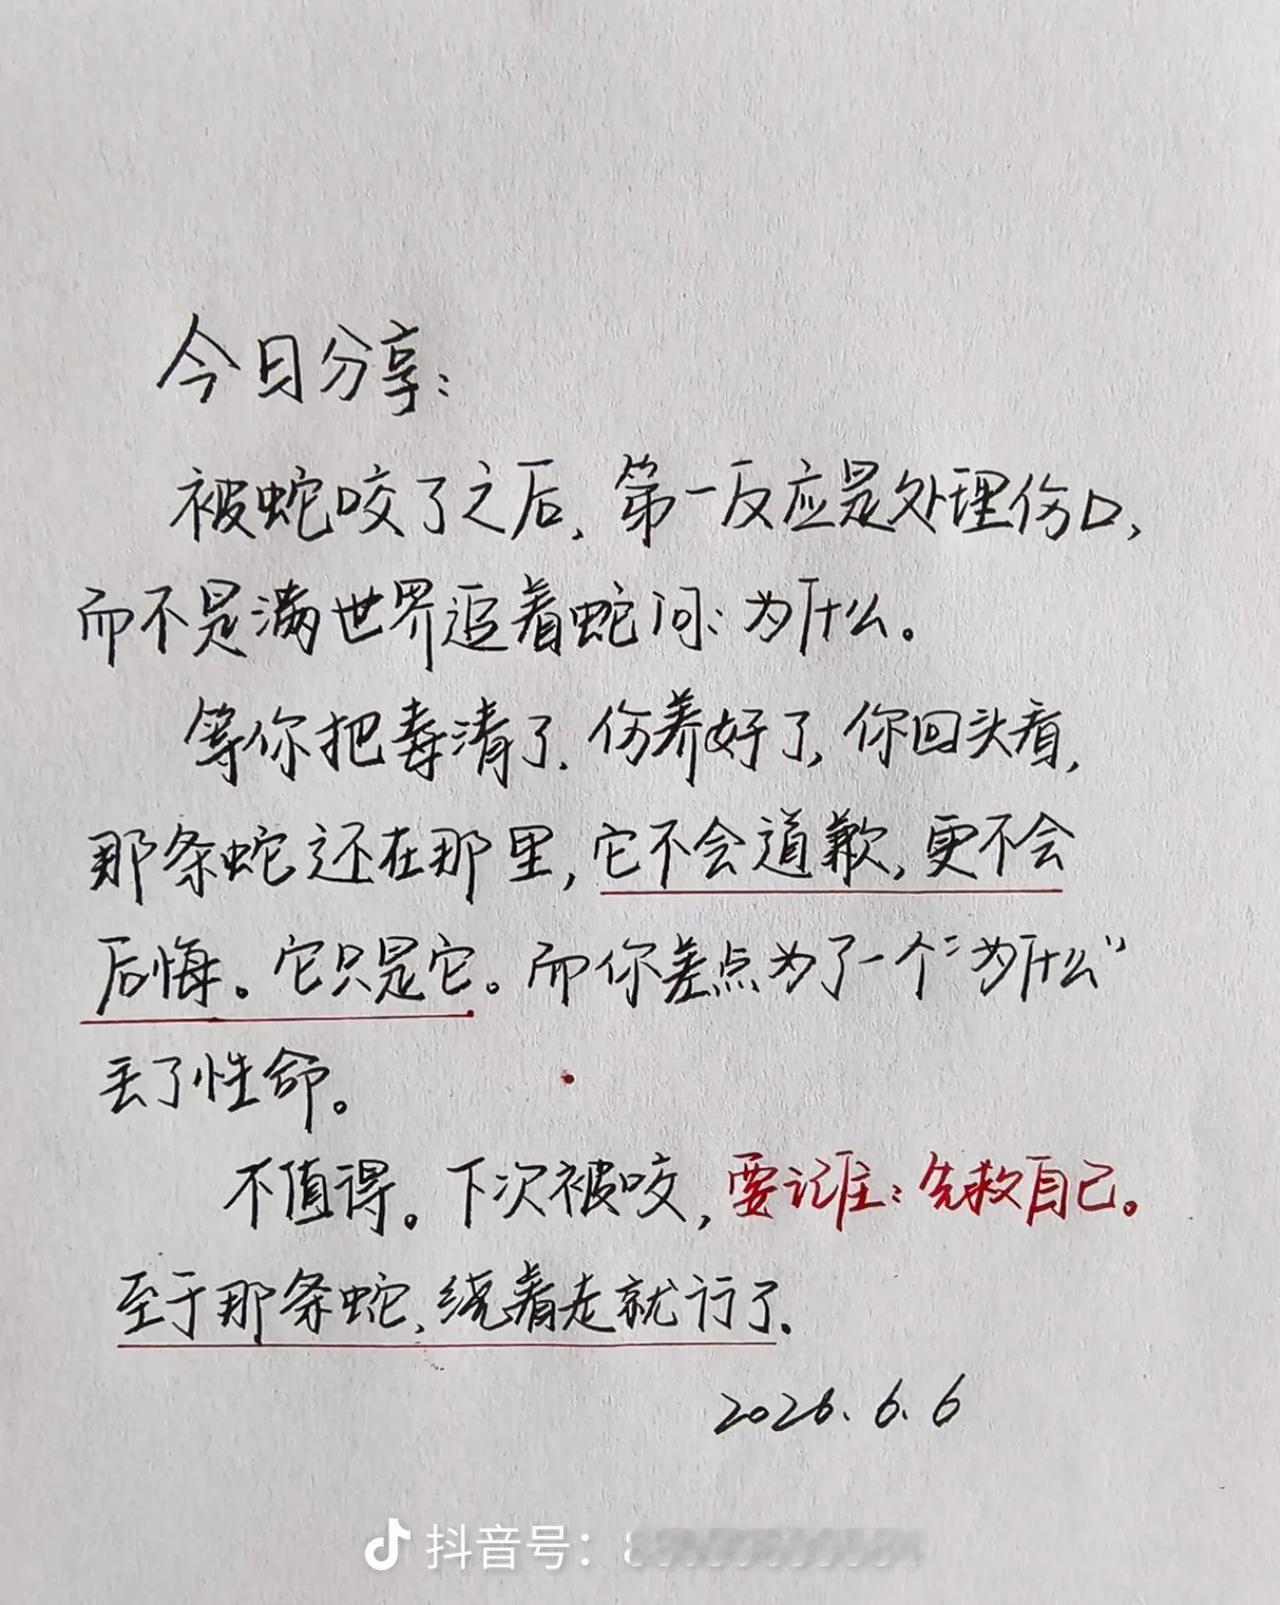 今日分享：
被蛇咬了之后，第一反应是处理伤口，
而不是满世界追着蛇问：为什么。
等你把毒清了．伤养好了，你回头看，
那条蛇还在那里，它不会道歉，更不会
后悔。它只是它。而你差点为了一个“为什么”
丢了性命。
不值得。下次被咬，要记住：先救自己。
至于那条蛇，绕着走就行了．
2026.6.6
抖音号：